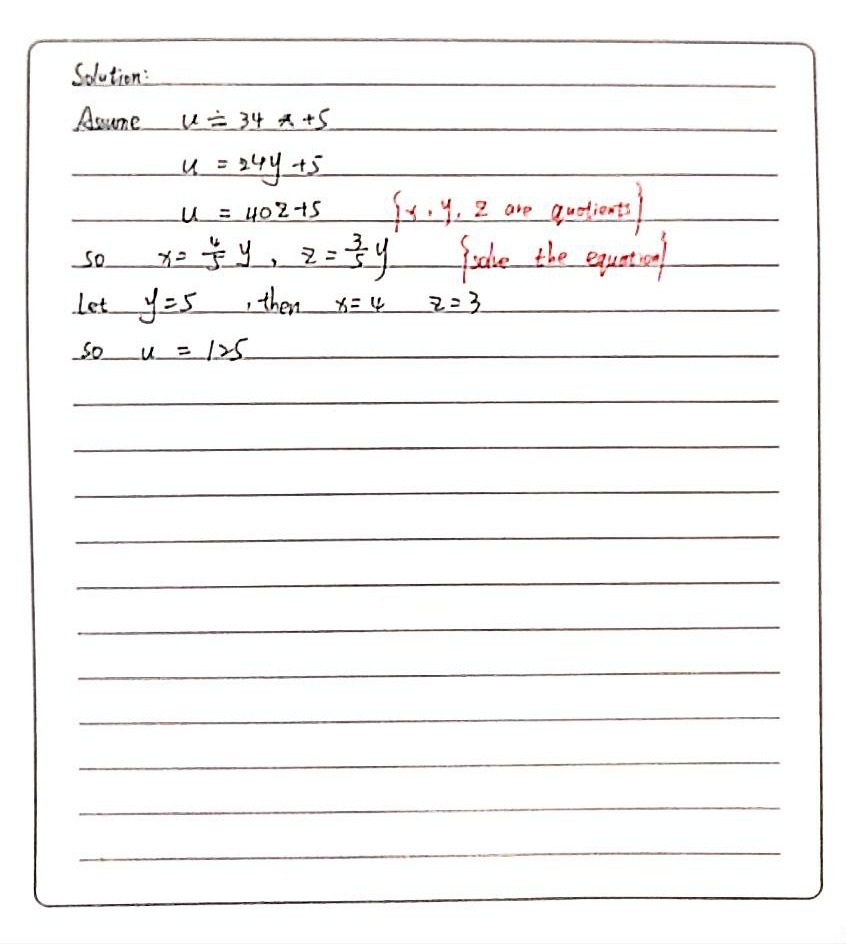 Solution:
Assume u = 34 x +5
u = 24y +5
u = 40z+5 {x, y, z are quotients}
so x = 4/5 y, z = 3/5 y {solve the equation}
Let y=5, then x=4 z=3
so u = 125